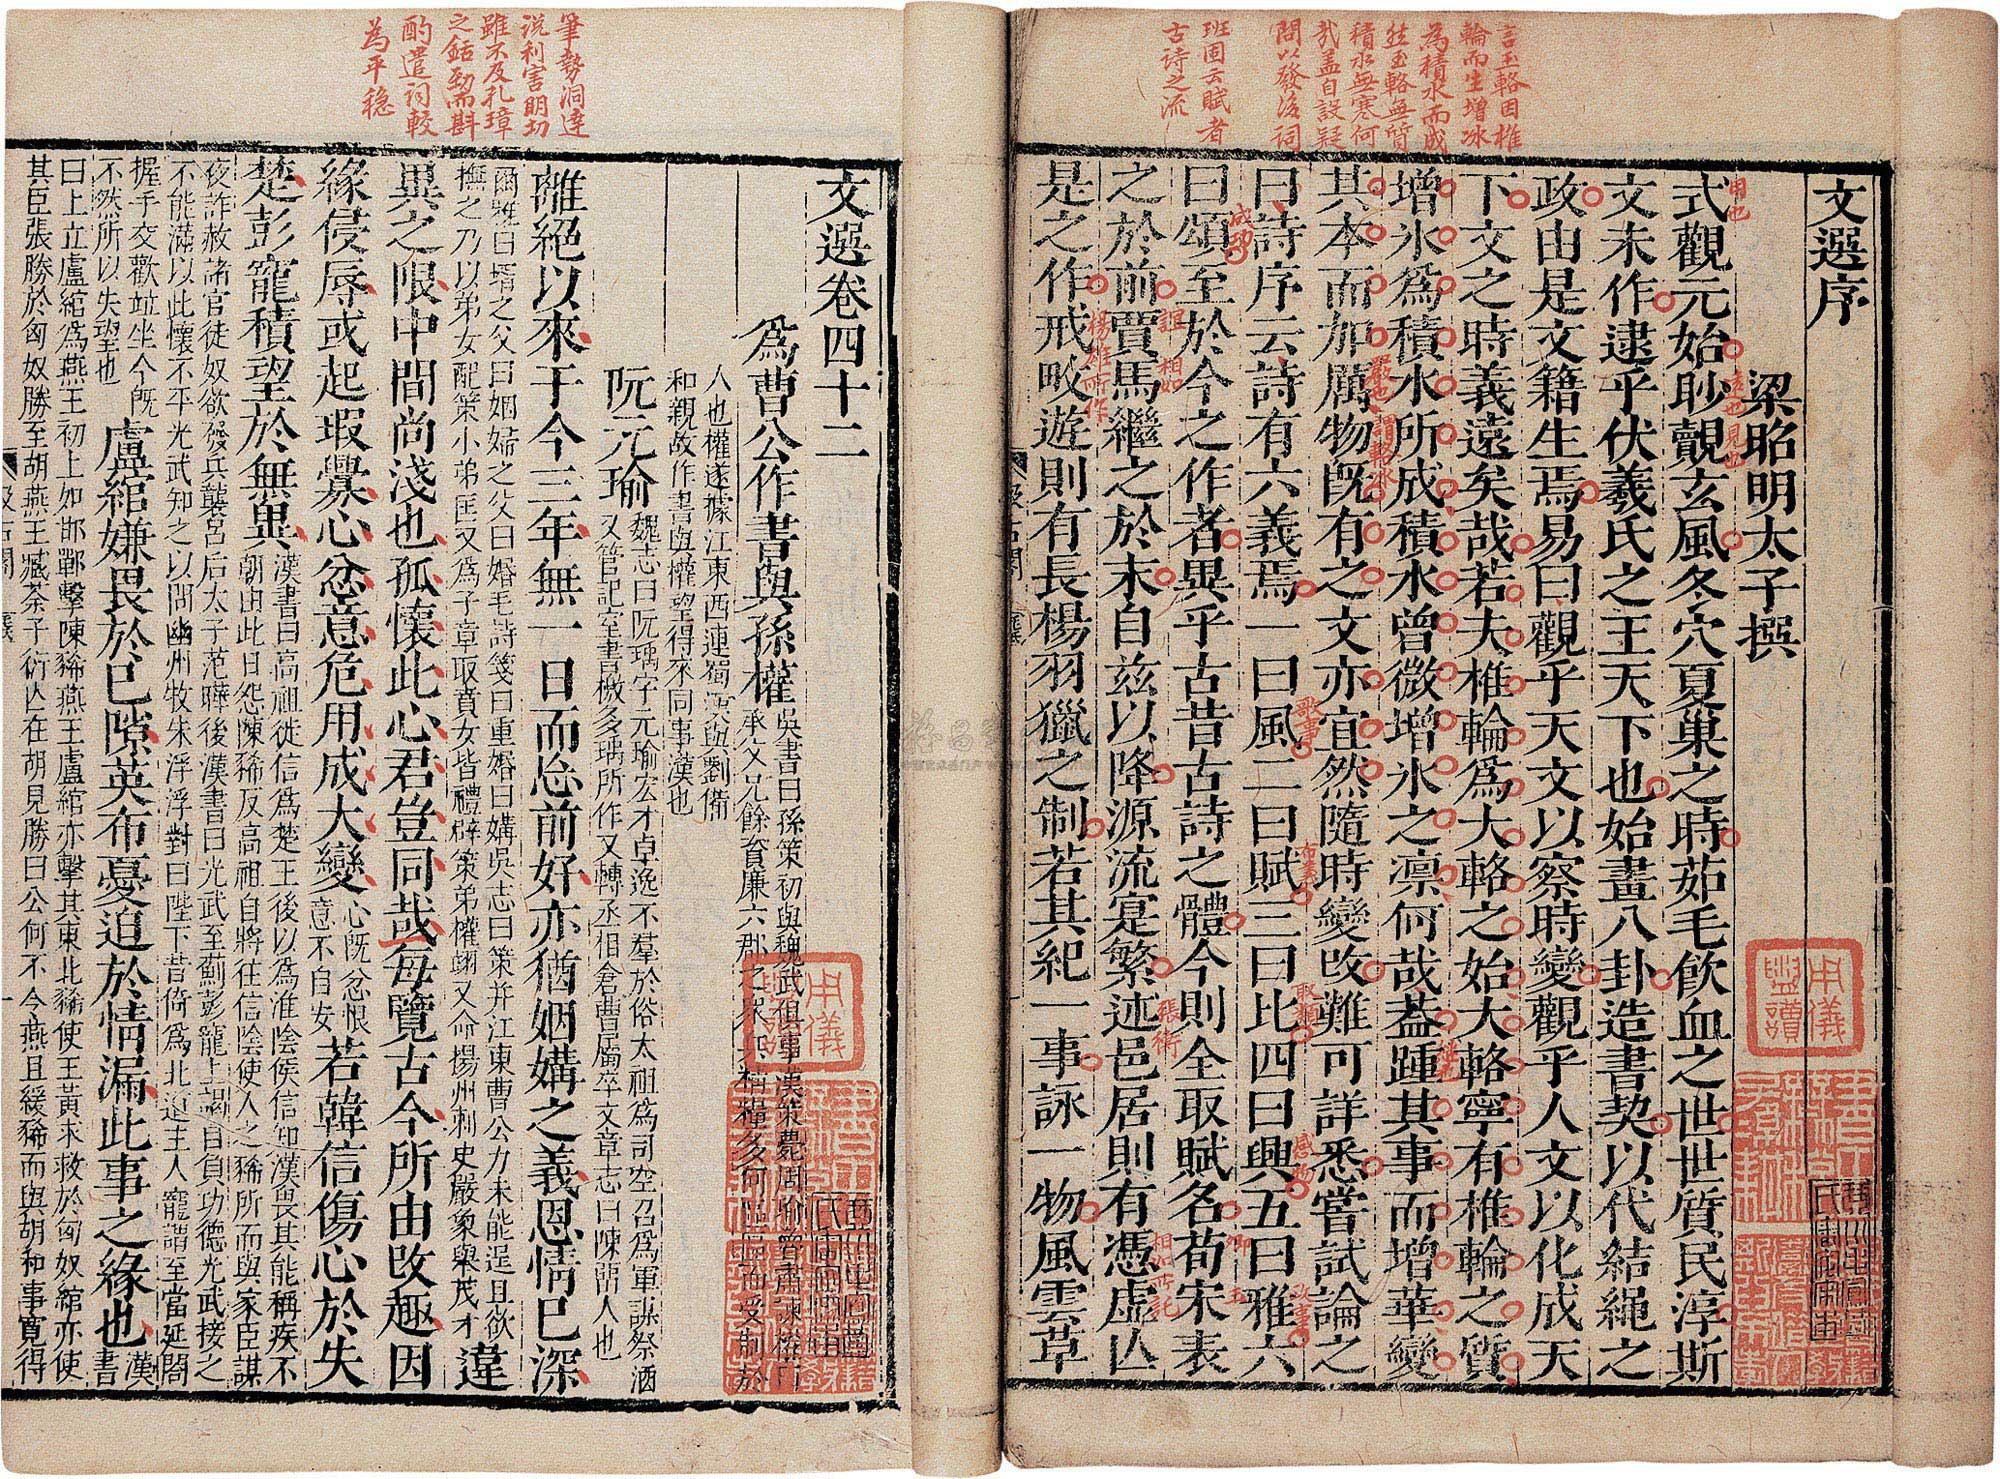 文選序
梁昭明太子撰
式觀元始眇覿玄風冬穴夏巢之時茹毛飲血之世世質民淳斯
文未作逮乎伏羲氏之王天下也始畫八卦造書契以代結繩之
政由是文籍生焉易曰觀乎天文以察時變觀乎人文以化成天
下文之時義遠矣哉若夫椎輪爲大輅之始大輅寧有椎輪之質
增氷爲積水所成積水曾微增氷之凛何哉蓋踵其事而增華變
其本而加厲物旣有之文亦宜然隨時變改難可詳悉嘗試論之
曰詩序云詩有六義焉一曰風二曰賦三曰比四曰興五曰雅六
曰頌至於今之作者異乎古昔古詩之體今則全取賦名荀宋表
之於前賈馬繼之於末自兹以降源流寔繁述邑居則有憑虛亾
是之作戒畋遊則有長楊羽獵之制若其紀一事詠一物風雲草
言玉輅因椎
輪而生增冰
為積水而成
然玉輅無質
積水無寒何
哉蓋自設疑
問以發後詞
班固云賦者
古诗之流
用也
遠也見也
嚴也
謂輅水
成功
歌事
布義
取類
感物
政事
誼
相如
楊雄所作
張衡
卿
玉
文選卷四十二
爲曹公作書與孫權
吳書曰孫策初與魏武俱事漢策薨周瑜魯肅諫權曰
承父兄餘資廉六郡之衆兵精糧多何區區而受制於
人也權遂據江東西連蜀漢與劉備
和親故作書與權望得來同事漢也
阮元瑜
魏志曰阮瑀字元瑜宏才卓逸不羣於俗太祖爲司空召爲軍謀祭酒
又管記室書檄多瑀所作又轉丞相倉曹屬卒文章志曰陳留人也
離絕以來于今三年無一日而忘前好亦猶姻媾之義恩情已深
爾雅曰壻之父曰姻婦之父曰婚毛詩箋曰重婚曰媾吳志曰策并江東曹公力未能逞且欲
撫之乃以弟女配策小弟匡又爲子章取賁女皆禮辟策弟權翊又命揚州刺史嚴象舉茂才
違
異之限中間尚淺也孤懷此心君豈同哉每覽古今所由改趣因
緣侵辱或起瑕釁心忿意危用成大變
心旣忿恨
意不自安
若韓信傷心於失
楚彭寵積望於無異
漢書曰高祖徙信爲楚王後以爲淮陰侯信知漢畏其能稱疾不
朝由此日怨陳豨反高祖自將往信陰使人之豨所而與家臣謀
夜詐赦諸官徒奴欲發兵襲呂后太子范曄後漢書曰光武至薊彭寵上謁自負功德光武接之
不能滿以此懷不平光武知之以問幽州牧朱浮浮對曰陛下昔倚爲北道主人寵謂至當延閤
握手交歡並坐今旣
不然所以失望也
盧綰嫌畏於已隙英布憂迫於情漏此事之緣也
漢書
曰上立盧綰爲燕王初上如邯鄲擊陳豨燕王盧綰亦擊其東北豨使王黃求救於匈奴綰亦使
其臣張勝於匈奴勝至胡燕王臧荼子衍亾在胡見勝曰公何不令燕且緩豨而與胡和事寬得
筆勢洞達
说利害明切
雖不及孔璋
之銛勁而斟
酌遣词較
為平穏